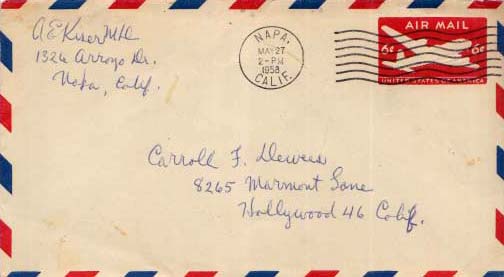 A E Kiser MD
1326 Arroyo Dr.
Napa, Calif.
NAPA,
MAY 27
2-PM
1958
CALIF.
AIR MAIL
6¢ 6¢
UNITED STATES OF AMERICA
Carroll F. Dewees
8265 Marmont Lane
Hollywood 46 Calif.